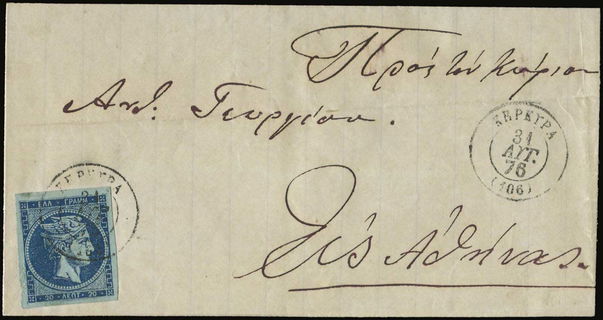 Πρὸς τὸν Κύριον
Ἀντ. Γεωργίου.
Εἰς Ἀθήνας
ΚΕΡΚΥΡΑ
31
ΑΥΓ.
76
(106)
ΚΕΡΚΥΡΑ
31
ΕΛΛ ΓΡΑΜΜ
20 ΛΕΠΤ 20